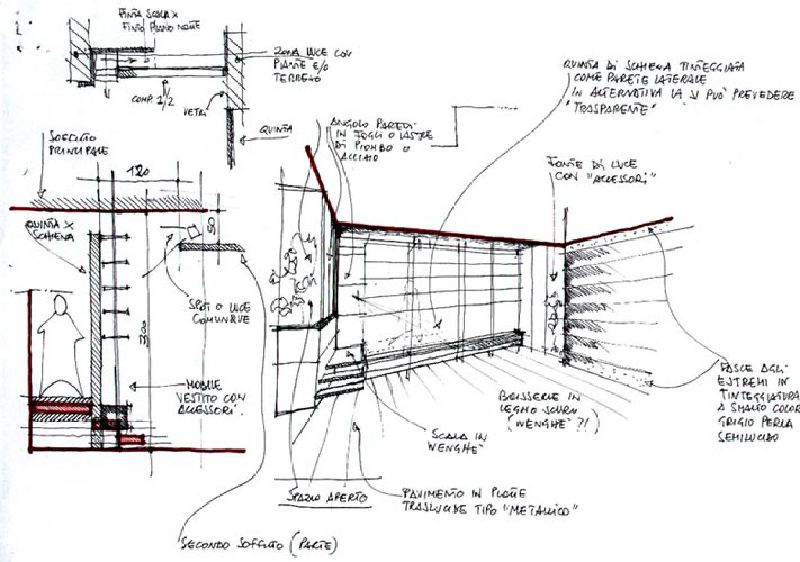 FINTA SCALA X
FINTO PIANO NOTTE
ZONA LUCE CON
PIANTE E/O
TERRENO
COMP. 1/2
VETRI
QUINTA
SOFFITTO
PRINCIPALE
120
QUINTA X
SCHIENA
50
SPOT O LUCE
COMUNQUE
MOBILE
VESTITO CON
ACCESSORI.
ANGOLO PARETI
IN FOGLI O LASTRE
DI PIOMBO O
ACCIAIO
QUINTA DI SCHIENA TINTEGGIATA
COME PARETE LATERALE
IN ALTERNATIVA LA SI PUÒ PREVEDERE
"TRASPARENTE"
FONTE DI LUCE
CON "ACCESSORI"
FASCE AGLI
ESTREMI IN
TINTEGGIATURA
A SMALTO COLOR
GRIGIO PERLA
SEMILUCIDO
BOISSERIE IN
LEGNO SCURO
(WENGHE ?!)
SCALA IN
WENGHE
SPAZIO APERTO
PAVIMENTO IN
TRASLUCIDE TIPO "METALLICO"
SECONDO SOFFITTO (PARTE)